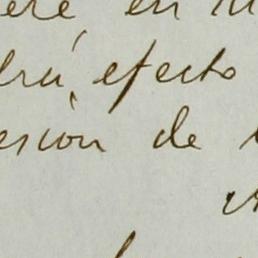 ere en
drá efecto
esión de